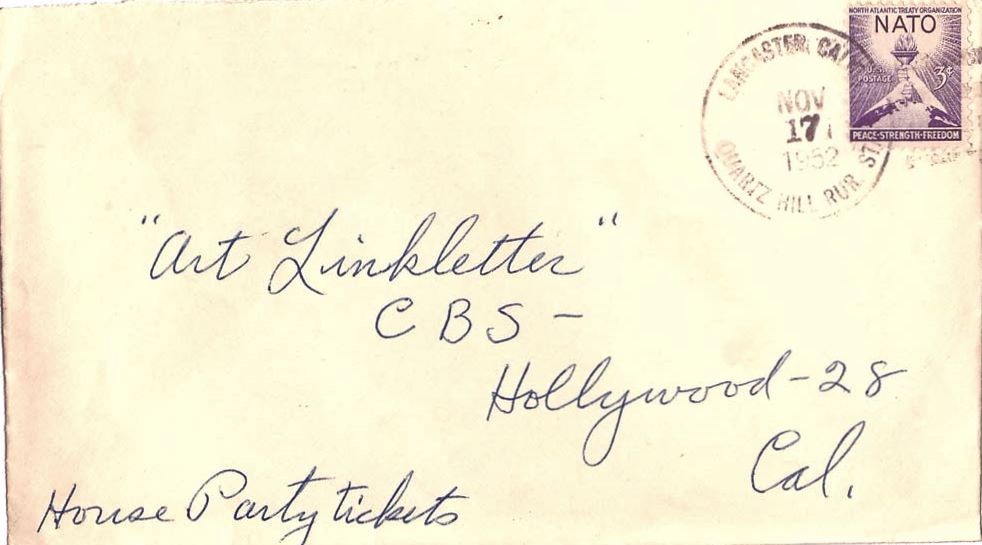 NORTH ATLANTIC TREATY ORGANIZATION
NATO
U.S. POSTAGE
3¢
PEACE-STRENGTH-FREEDOM
LANCASTER, CA
NOV
17
1952
QUARTZ HILL RUR. STA
"Art Linkletter"
CBS -
Hollywood - 28
Cal.
House Party tickets